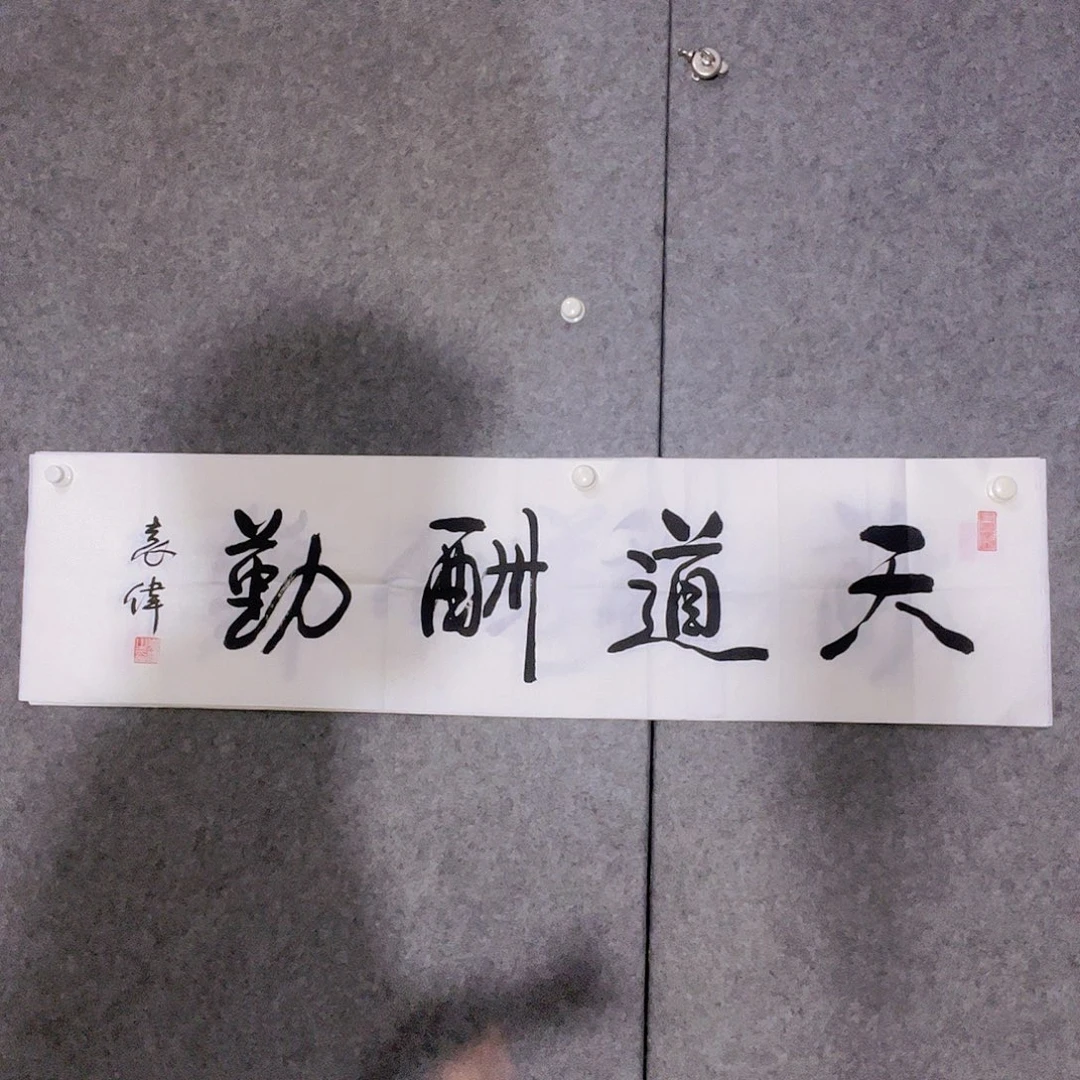 天道酬勤
袁偉